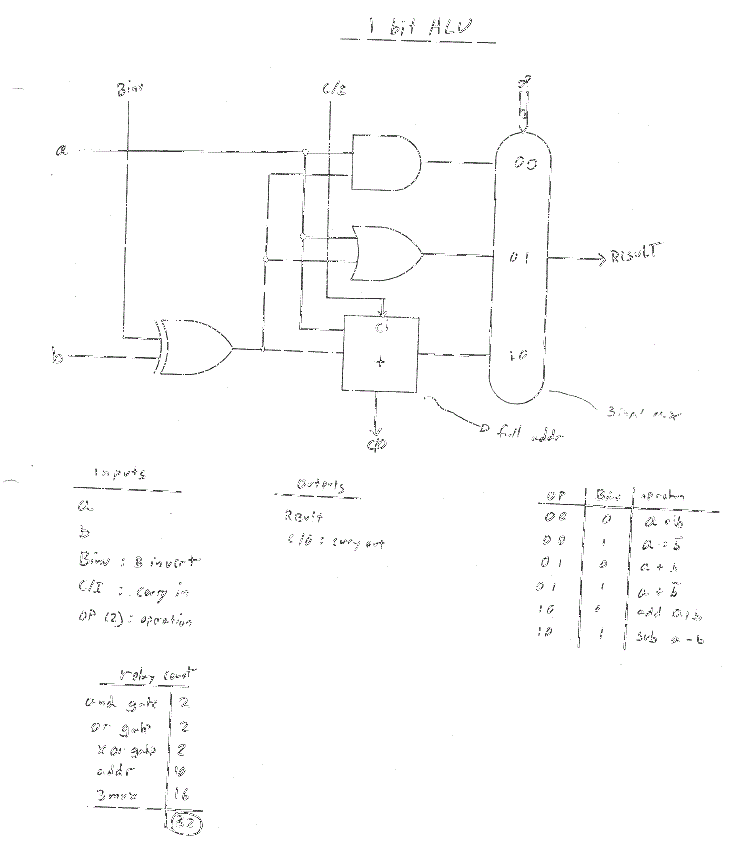 1 bit ALU
Binv
C/I
OP
a
00
01
RISULT
b
CI
+
10
3 input mux
full addr
C/O
Inputs
a
b
Binv : B invert
C/I : carry in
OP (2) : operation
Outputs
Result
C/O : carry out
OP Binv operation
00 0 a • b
00 1 a • b̅
01 0 a + b
01 1 a + b̅
10 0 add a+b
10 1 sub a-b
relay count
and gate 2
or gate 2
xor gate 2
addr 10
3 mux 16
32